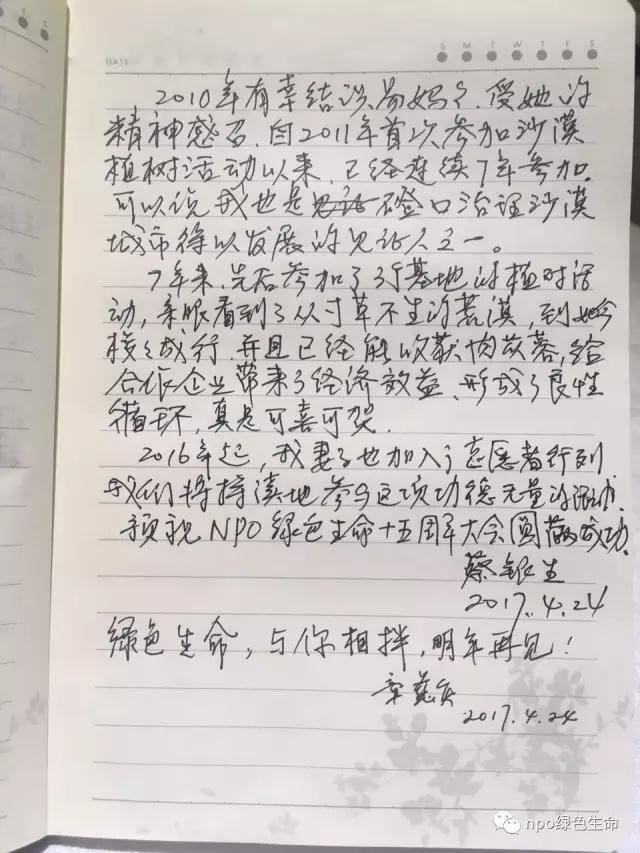 DATE
S M T W T F S
2010年有幸结识易妈妈,受她的
精神感召,自2011年首次参加沙漠
植树活动以来,已经连续7年参加。
可以说我也是磴口治理沙漠
城市得以发展的见证人之一。
7年来,先后参加了3个基地的植树活
动,亲眼看到了从寸草不生的荒漠,到如今
梭梭成行,并且已经能收获肉苁蓉,给
合作企业带来了经济效益、形成了良性
循环,真是可喜可贺.
2016年起,我妻子也加入了志愿者行列
我们将持续地参与这项功德无量的活动.
预祝NPO绿色生命十五周年大会圆满成功.
蔡银生
2017.4.24
绿色生命,与你相拌,明年再见!
2017.4.24
npo绿色生命